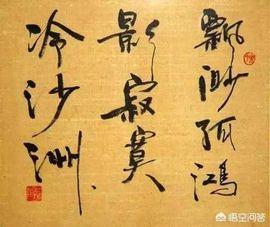 飘渺孤鸿
影寂寞
冷沙洲
悟空问答